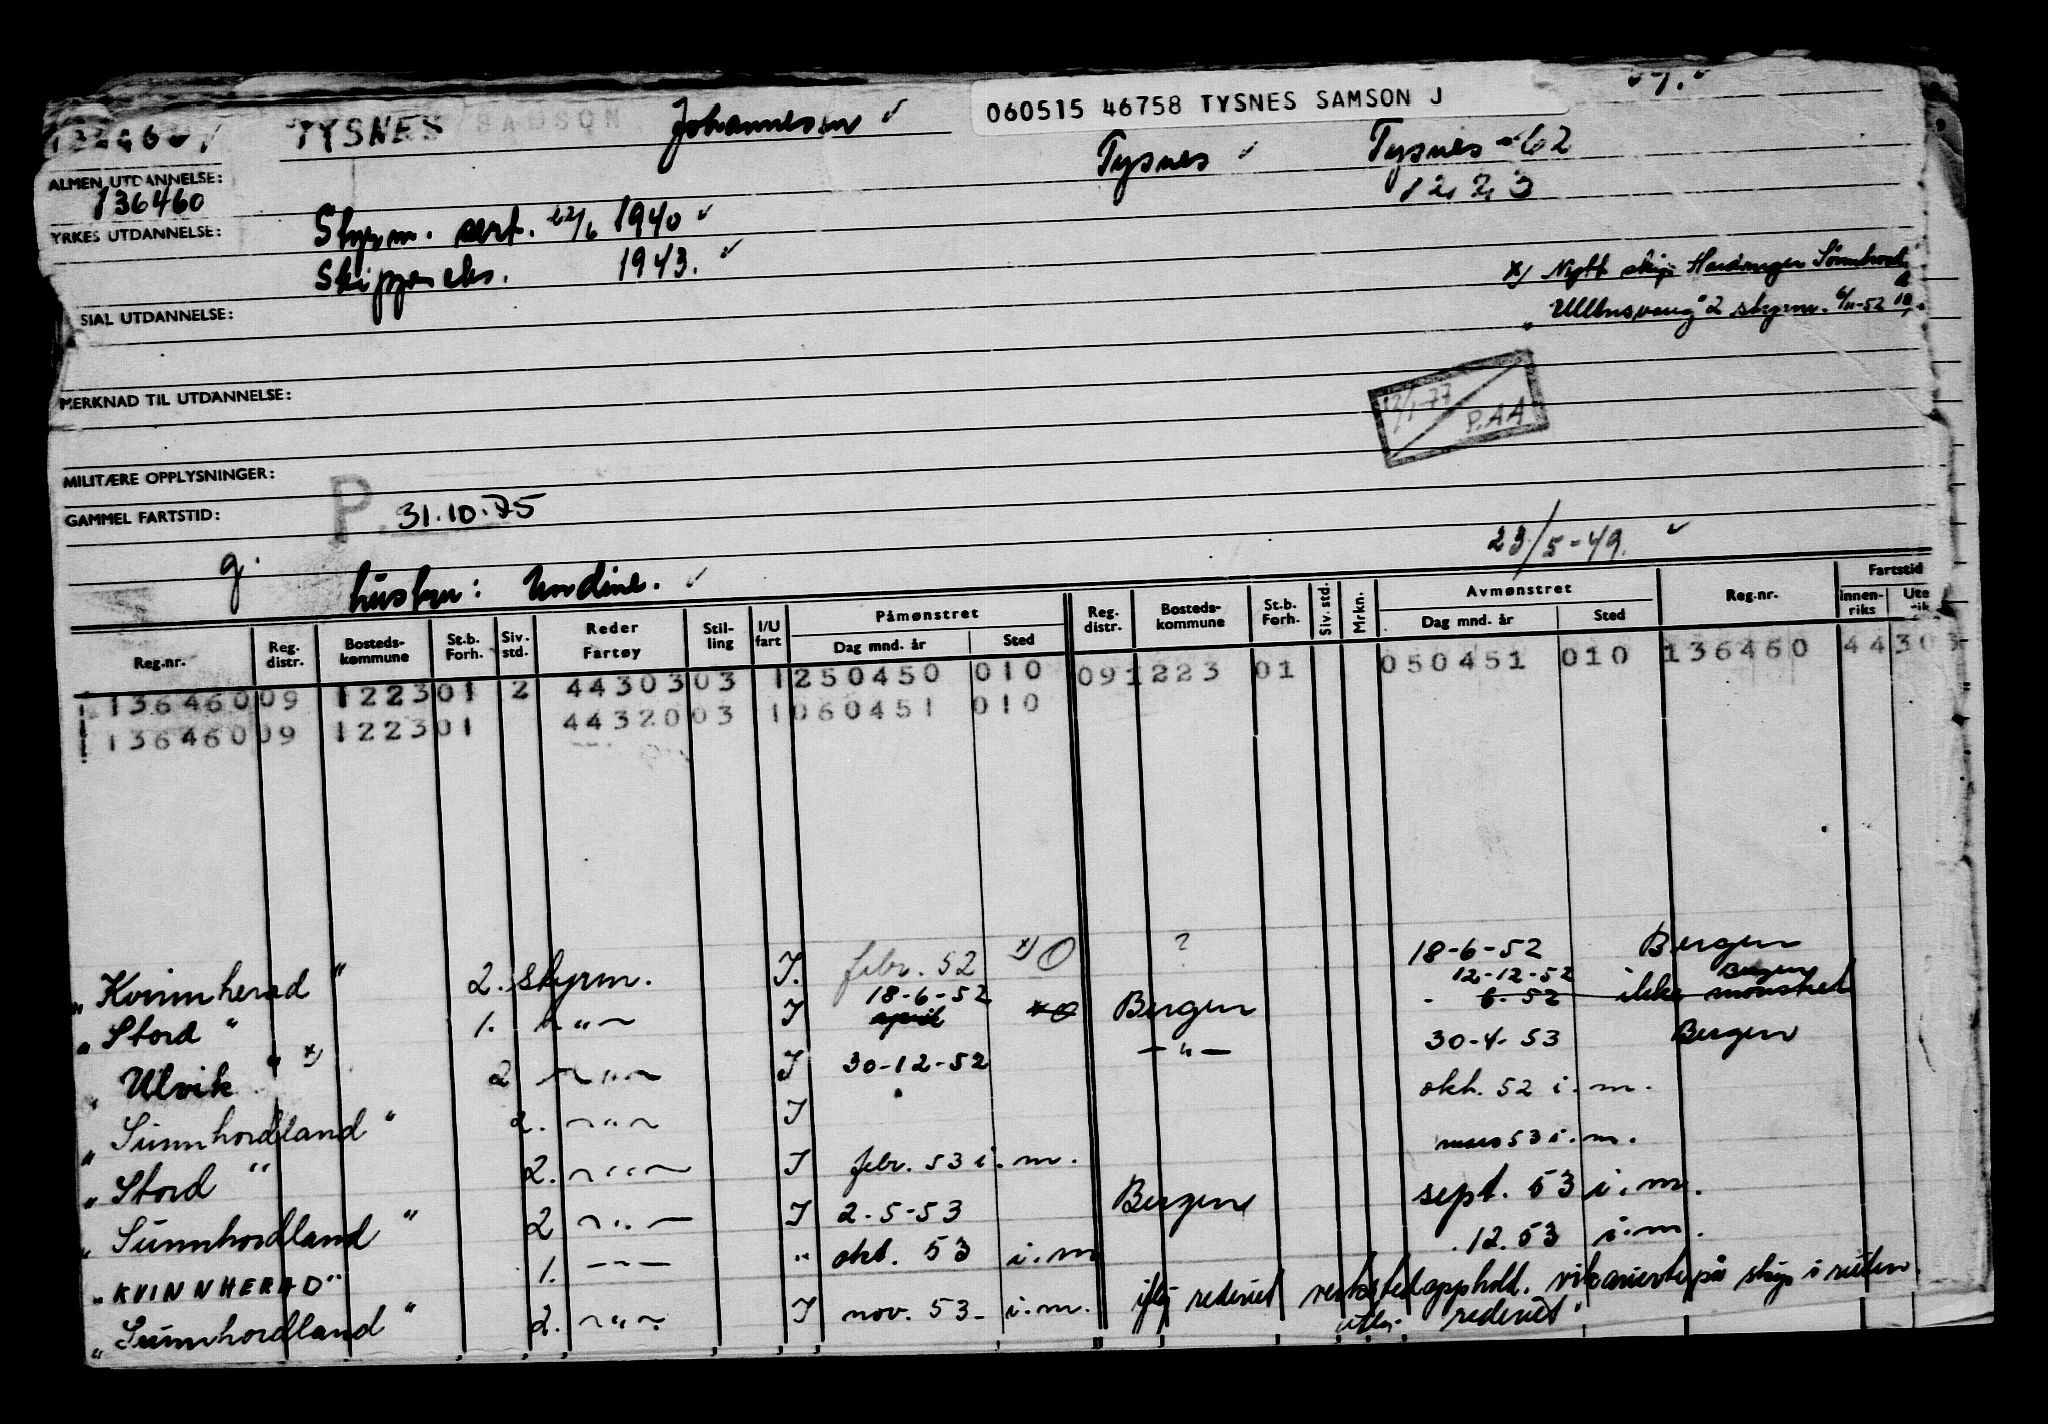 TYSNES SAMSON Johannessen ✓ 060515 46758 TYSNES SAMSON J
Tysnes ✓ Tysnes - 62
1223
ALMEN UTDANNELSE:
136460
YRKES UTDANNELSE:
Styrm. sert. 12/6 1940 ✓
Skippereks. 1943. ✓
x) Nytt skip Hardanger Sunnhordl.
SIAL UTDANNELSE:
"Ullensvang" 2 styrm. 6/11-52
MERKNAD TIL UTDANNELSE:
12/1-77 P.AA.
MILITÆRE OPPLYSNINGER:
GAMMEL FARTSTID: P. 31.10.75
g. 23/5-49. ✓
hustru: Undine. ✓
Reg.nr. Reg. distr. Bosteds- kommune St.b. Forh. Siv. std. Reder Fartøy Stil- ling I/U fart Påmønstret Dag mnd. år Sted Reg. distr. Bosteds- kommune St.b. Forh. Siv. std. Mrkn. Avmønstret Dag mnd. år Sted Reg.nr. Fartstid Innen- riks Ute -rik
136460 09 1223 01 2 44303 03 1 250450 010 09 1223 01 050451 010 136460 44303
136460 09 1223 01 44320 03 1 060451 010
"Kvinnherad" 2. styrm. I. febr. 52 x) O ? 18-6-52 Bergen
"Stord" 1. — " — I 18-6-52 april Bergen 12-12-52 6-52 Bergen ikke mønstret
"Ulvik" x) 2 — " — I 30-12-52 — " — 30-4-53 Bergen
"Sunnhordland" 2. — " — I okt. 52 i.m.
"Stord" 2. — " — I febr. 53 i.m. mars 53 i.m.
"Sunnhordland" 2 — " — I 2-5-53 Bergen sept. 53 i.m.
"KVINNHERAD" 1. — " — " okt. 53 i.m. .12.53 i.m.
"Sunnhordland" 2. — " — I nov. 53 - i.m. iflg rederiet verkstedopphold. vikarierte på skip i ruten.
rederiet